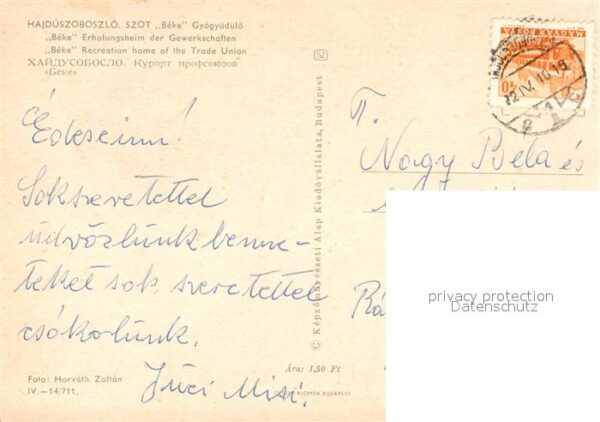 HAJDÚSZOBOSZLÓ. SZOT „Béke" Gyógyüdülő
„Béke" Erholungsheim der Gewerkschaften
„Béke" Recreation home of the Trade Union
ХАЙДУСОБОСЛО. Курорт профсоюзов
«Беке»
Édeseim!
Sok szeretettel
üdvözlünk benne-
teket sok szeretettel
csókolunk.
Juci Misi.
Foto: Horváth Zoltán
IV.—14/711.
© Képzőművészeti Alap Kiadóvállalata, Budapest
Ára: 1,50 Ft
NYOMDA, BUDAPEST
MAGYAR POSTA
72 IV. 10 19
Π.
Nagy Béla és
Rá
privacy protection
Datenschutz